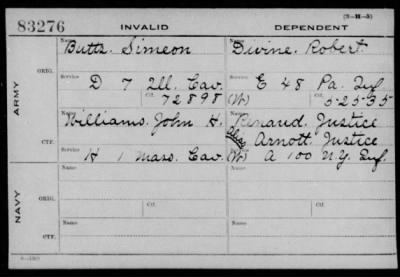 (3-H-5)
83276 INVALID DEPENDENT
ARMY
ORIG.
Name Name
Butts, Simeon Divine, Robert
Service Service
D 7 Ill. Cav. E 48 Pa. Inf
Ctf. Ctf.
72898 (W) 52535
CTF.
Name
Williams, John H. Renaud, Justice
Alias Arnott, Justice
Service
H 1 Mass. Cav. (W) A 100 N.Y. Inf.
NAVY
ORIG.
Name Name
Service Ctf. Service Ctf.
CTF.
Name Name